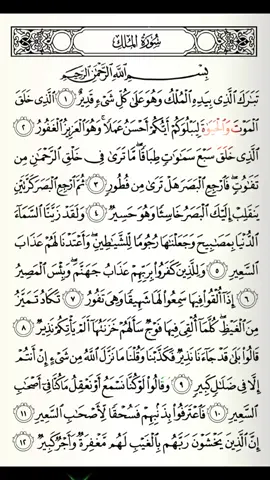 سورة الملك
بسم الله الرحمن الرحيم
تبارك الذي بيده الملك وهو على كل شيء قدير ١ الذي خلق
الموت والحيوة ليبلوكم أيكم أحسن عملا وهو العزيز الغفور ٢
الذي خلق سبع سموات طباقا ما ترى في خلق الرحمن من
تفوت فارجع البصر هل ترى من فطور ٣ ثم ارجع البصر كرتين
ينقلب إليك البصر خاسئا وهو حسير ٤ ولقد زينا السماء
الدنيا بمصبيح وجعلنها رجوما للشيطين وأعتدنا لهم عذاب
السعير ٥ وللذين كفروا بربهم عذاب جهنم وبئس المصير
٦ إذا ألقوا فيها سمعوا لها شهيقا وهي تفور ٧ تكاد تميز
من الغيظ كلما ألقي فيها فوج سألهم خزنتها ألم يأتكم نذير
٨
قالوا بلى قد جاءنا نذير فكذبنا وقلنا ما نزل الله من شيء إن أنتم
إلا في ضلل كبير ٩ وقالوا لو كنا نسمع أو نعقل ما كنا في أصحب
السعير ١٠ فاعترفوا بذنبهم فسحقا لأصحب السعير ١١
إن الذين يخشون ربهم بالغيب لهم مغفرة وأجر كبير ١٢